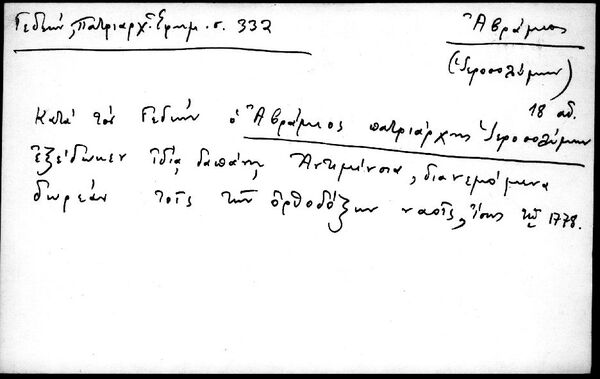 Γεδεών, Πατριαρχ. Ἐφημ. σ. 332
Ἀβράμιος
(Ἱεροσολύμων)
18 αἰ.
Κατά τόν Γεδεών ὁ Ἀβράμιος πατριάρχης Ἱεροσολύμων
ἐξέδωκεν ἰδίᾳ δαπάνῃ Ἀντιμήνσια, διανεμόμενα
δωρεάν τοῖς τῶν ὀρθοδόξων ναοῖς, ἔτος τῷ 1778.